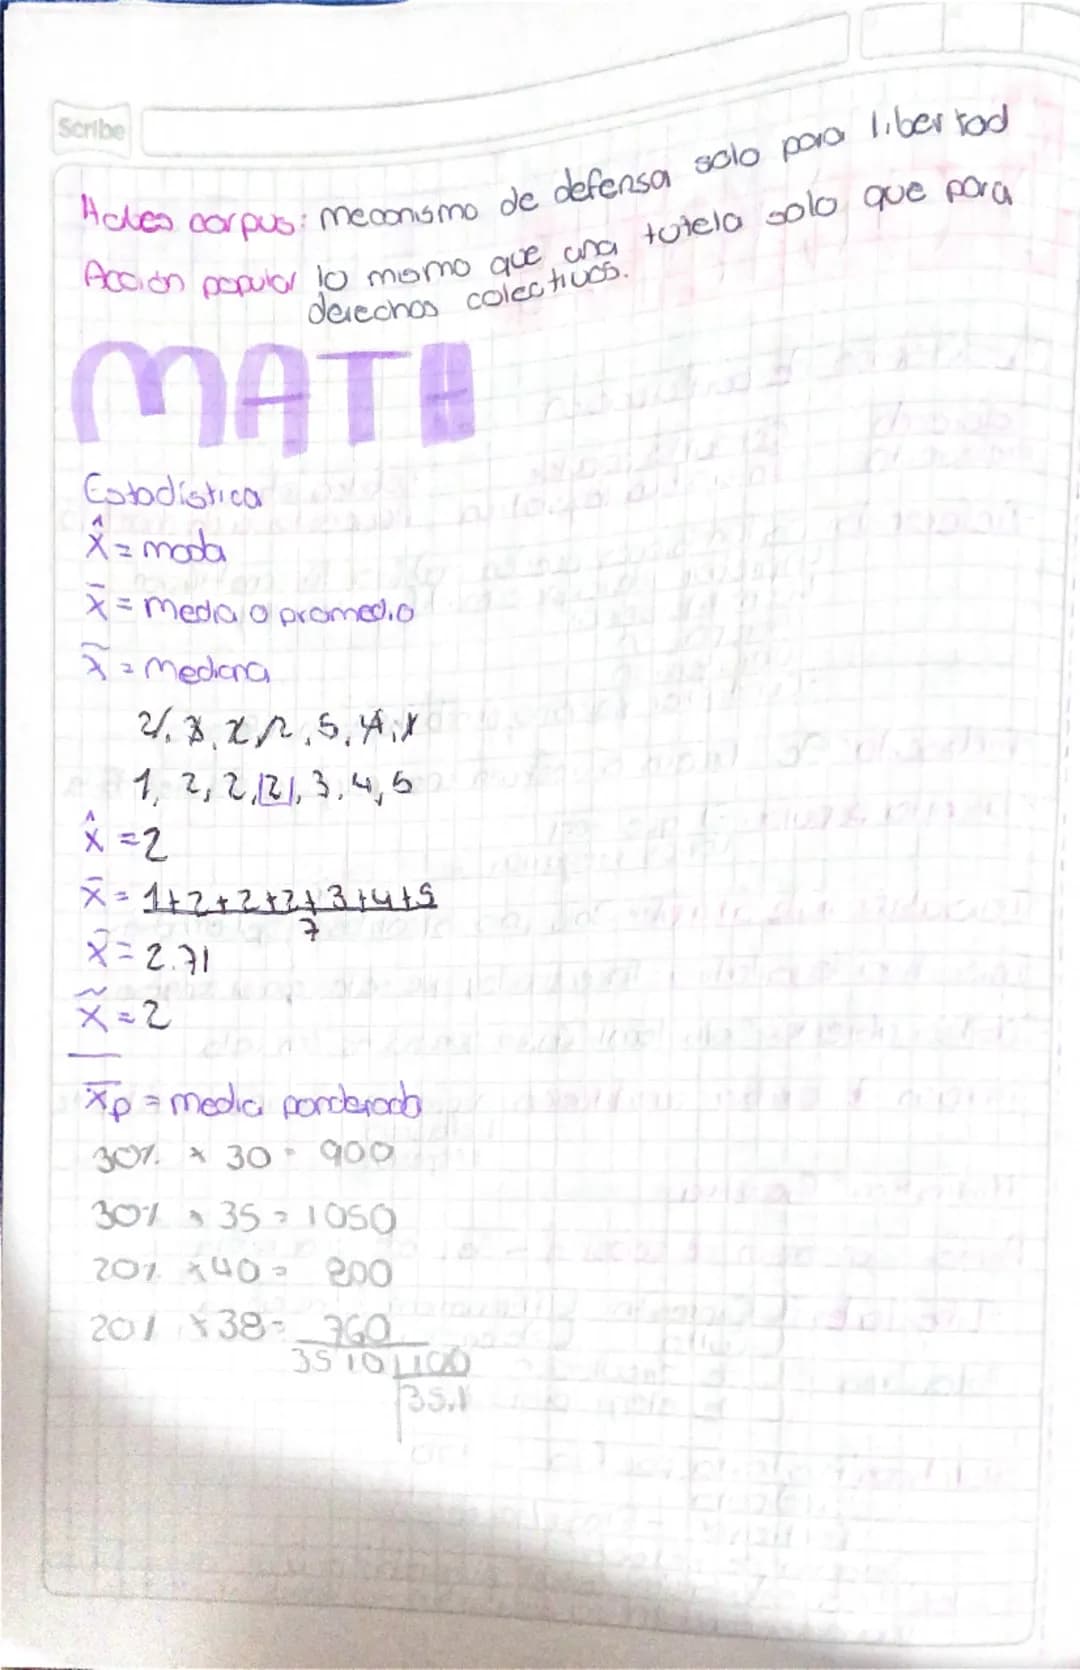 Scribe
Habes corpus: mecanismo de defensa solo para libertad
Acción popular lo mismo que una tutela solo que para
derechos colectivos.
MATH
Estadística
X̂ = moda
x̄ = media o promedio
x̃ = Mediana
2, 3, 2, 2, 5, 4, 1
1, 2, 2, |2|, 3, 4, 5
X̂ = 2
x̄ = 1+2+2+2+3+4+5
7
x̄ = 2.71
x̃ = 2
x̄p = media ponderada
30% x 30 = 900
30% x 35 = 1050
20% x 40 = 800
20% x 38 = 760
3510 | 100
35.1